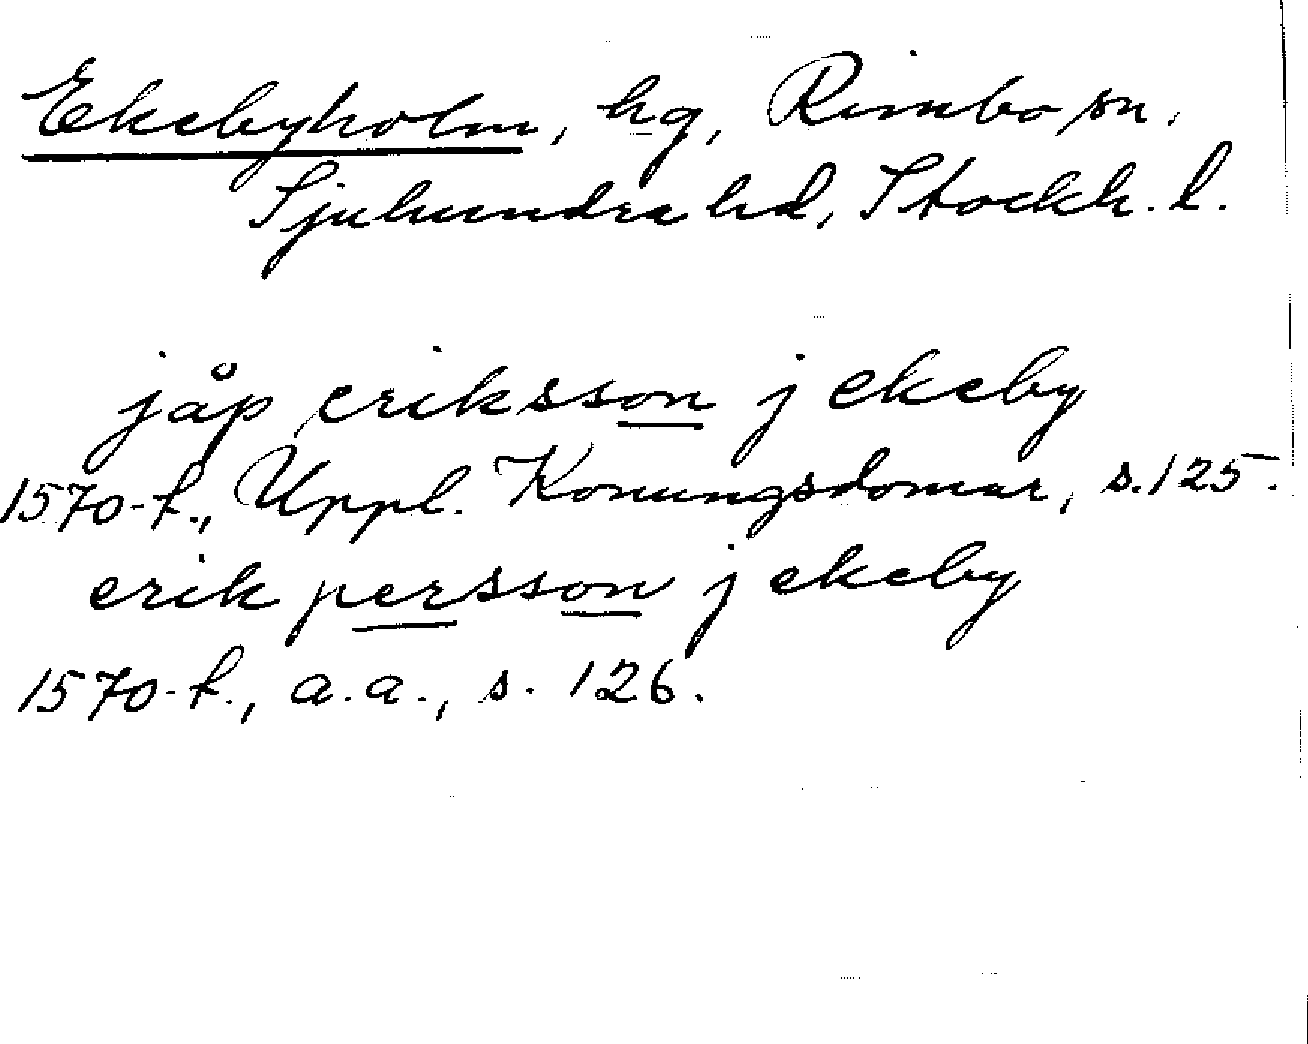 Ekebyholm, hg, Rimbo sn,
Sjuhundra hd, Stockh. l.
jåp eriksson j ekeby
1570-t., Uppl. Konungsdomar, s. 125.
erik persson j ekeby
1570-t., a.a., s. 126.